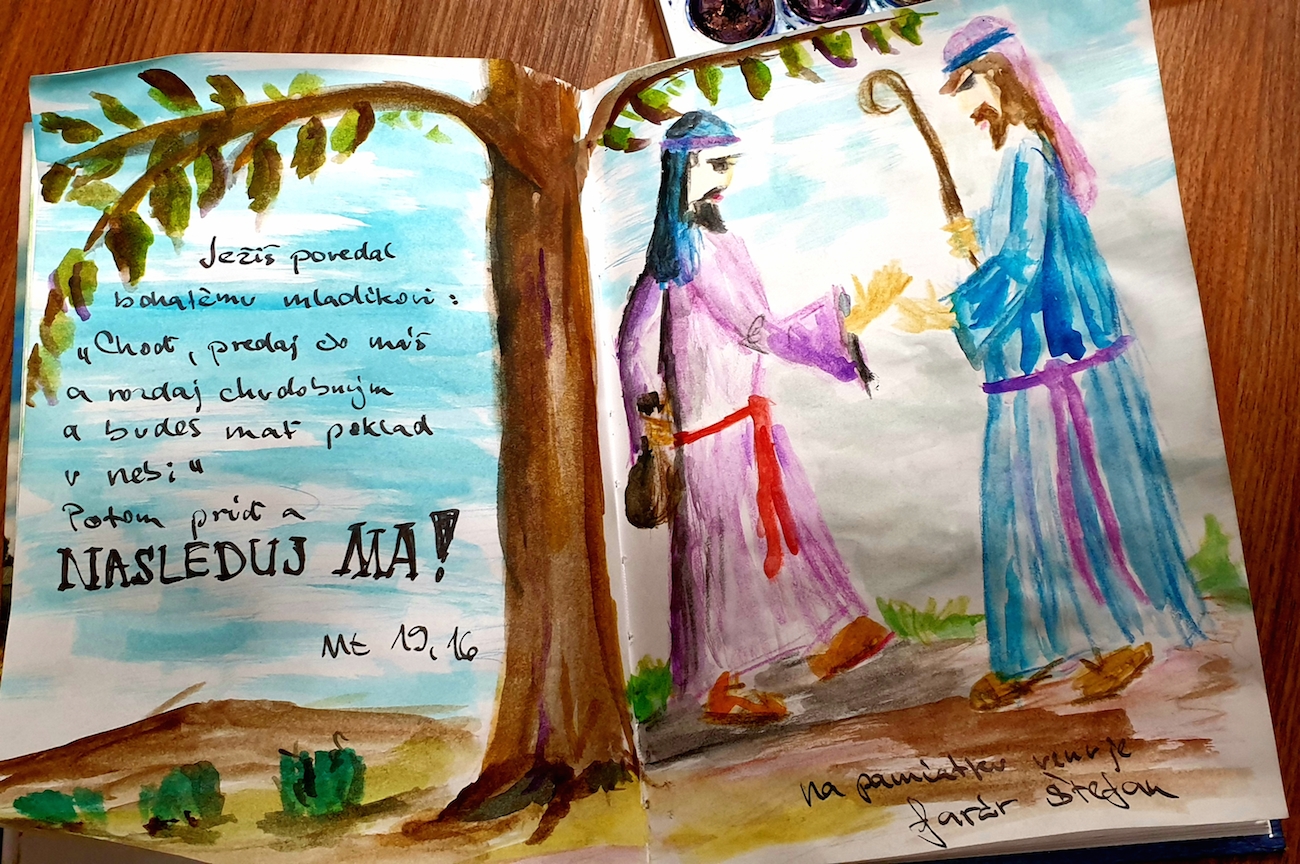 Ježiš povedal
bohatému mladíkovi:
„Choď, predaj čo máš
a rozdaj chudobným
a budeš mať poklad
v nebi“
Potom príď a
NASLEDUJ MA!
Mt 19,16
na pamiatku venuje
farár Štefan